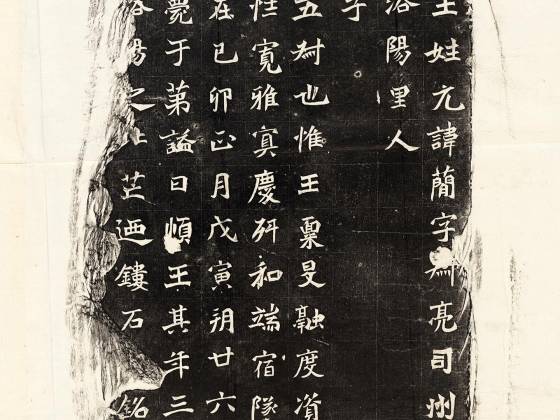 王姓元諱簡字叔亮司州
洛陽里人
子
五叔也惟王稟旻融度資
性寬雅寘慶矸和端宿隧
在己卯正月戊寅朔廿六
薨于第謚曰順王其年三
洛陽之北芒迺鏤石銘